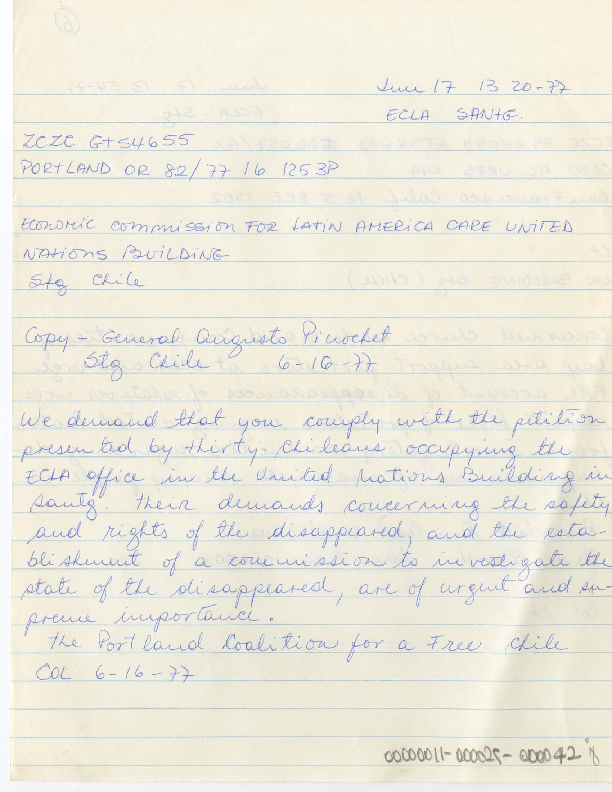 6
June 17 13 20-77
ECLA SANTG.
ZCZC GTS4655
PORTLAND OR 82/77 16 1253P
ECONOMIC COMMISSION FOR LATIN AMERICA CARE UNITED
NATIONS BUILDING
Stg Chile
Copy - General Augusto Pinochet
Stg Chile 6-16-77
We demand that you comply with the petition
presented by thirty chileans occupying the
ECLA office in the United Nations Building in
Santg. Their demands concerning the safety
and rights of the disappeared, and the esta-
blishment of a commission to investigate the
state of the disappeared, are of urgent and su-
preme importance.
The Portland Coalition for a Free Chile
COL 6-16-77
00000011-000029-000042